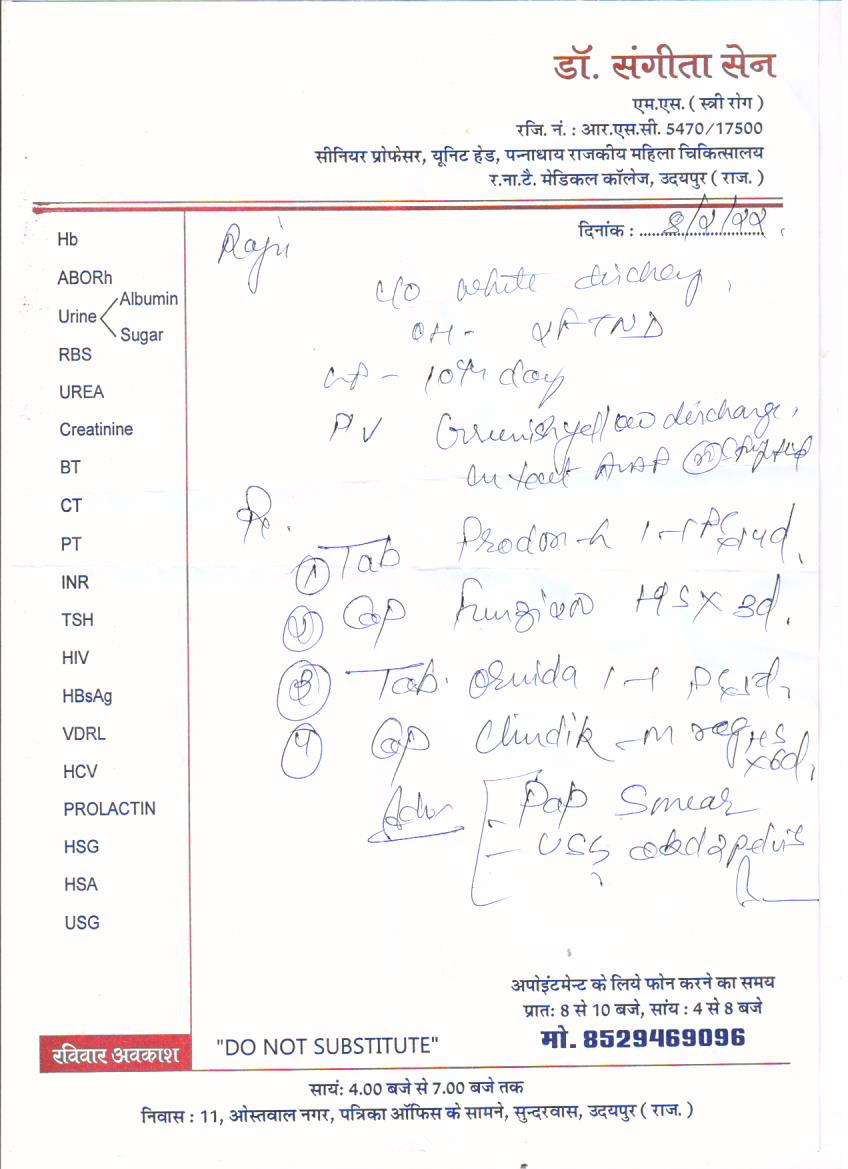 डॉ. संगीता सेन
एम.एस. ( स्त्री रोग )
रजि. नं. : आर.एस.सी. 5470/17500
सीनियर प्रोफेसर, यूनिट हेड, पन्नाधाय राजकीय महिला चिकित्सालय
र.ना.टै. मेडिकल कॉलेज, उदयपुर ( राज. )
दिनांक :
Hb
ABORh
Urine Albumin
Sugar
RBS
UREA
Creatinine
BT
CT
PT
INR
TSH
HIV
HBsAg
VDRL
HCV
PROLACTIN
HSG
HSA
USG
Raju
c/o white
OH - FTND
- 10th day
PV Greenish yellow discharge,
Rx.
1 Tab
Cap HS x 3d.
3 Tab. 1-1
4 Cap Clindik-m
x6d,
Adv - Pap Smear
- USG
अपोइंटमेन्ट के लिये फोन करने का समय
प्रातः 8 से 10 बजे, सांय : 4 से 8 बजे
मो. 8529469096
रविवार अवकाश
"DO NOT SUBSTITUTE"
सायं: 4.00 बजे से 7.00 बजे तक
निवास : 11, ओस्तवाल नगर, पत्रिका ऑफिस के सामने, सुन्दरवास, उदयपुर ( राज. )